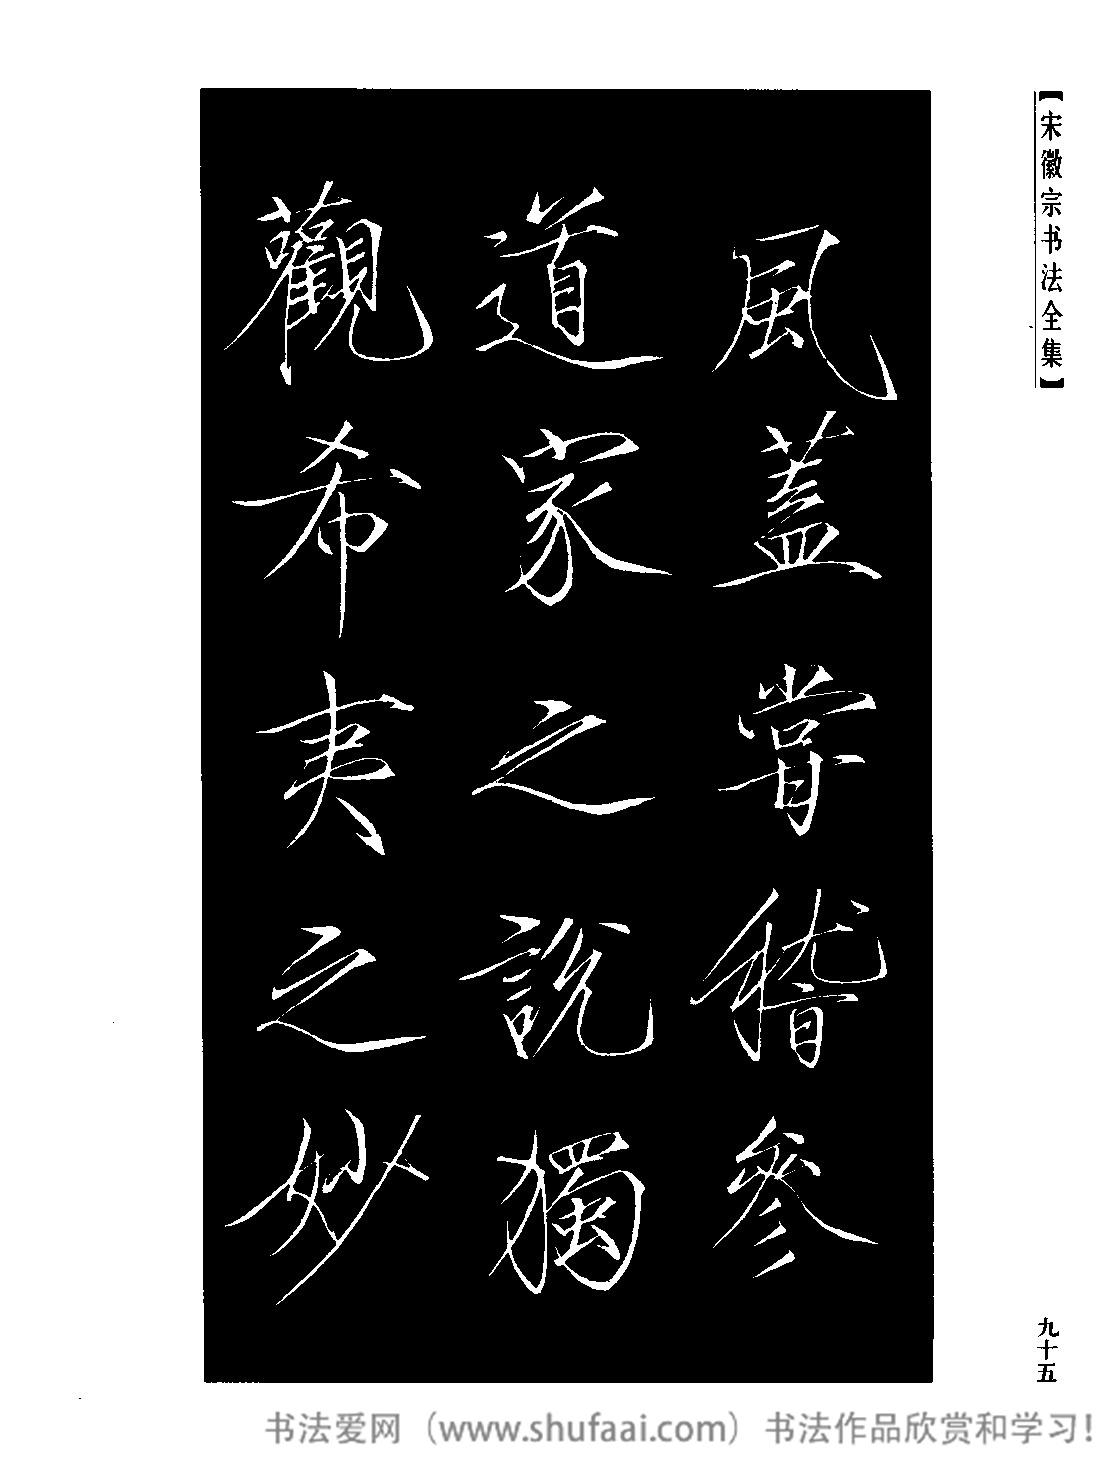 【宋徽宗书法全集】
風蓋嘗稽參
道家之說獨
觀希夷之妙
九十五
书法爱网（www.shufaai.com）书法作品欣赏和学习！